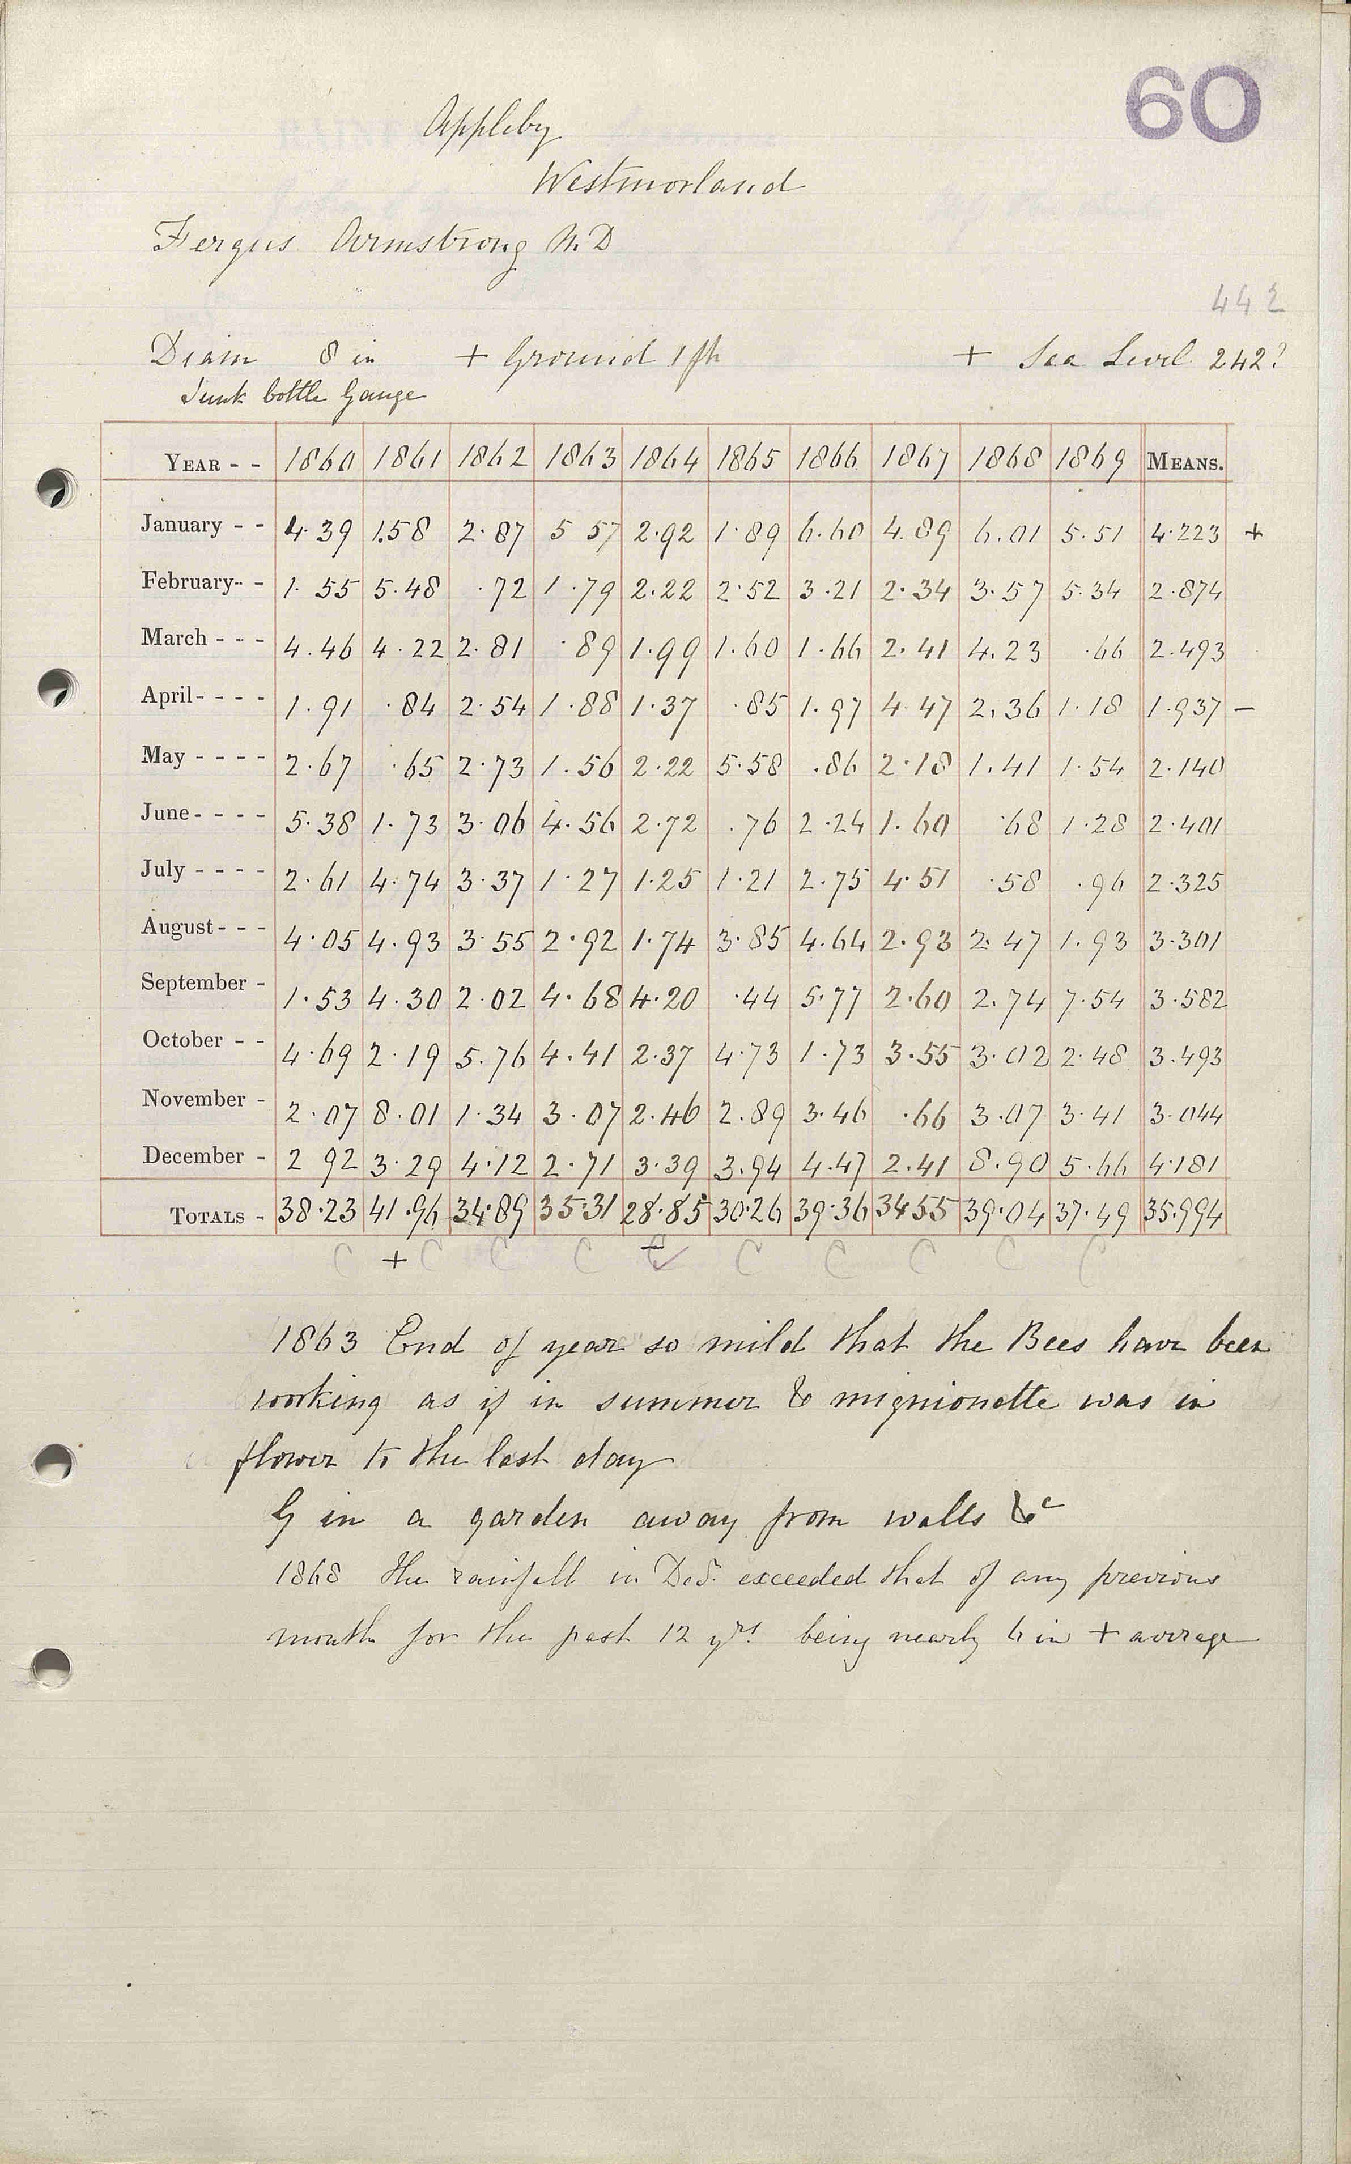 60
Appleby
Westmorland
Fergus Armstrong M.D
442
Diam 8 in + Ground 1 ft + Sea Level 242?
Junk bottle Gauge
YEAR - - 1860 1861 1862 1863 1864 1865 1866 1867 1868 1869 MEANS.
January - - 4.39 1.58 2.87 5 57 2.92 1.89 6.60 4.89 6.01 5.51 4.223 +
February- - 1.55 5.48 .72 1.79 2.22 2.52 3.21 2.34 3.57 5.34 2.874
March - - - 4.46 4.22 2.81 .89 1.99 1.60 1.66 2.41 4.23 .66 2.493
April- - - - 1.91 .84 2.54 1.88 1.37 .85 1.97 4.47 2.36 1.18 1.937 –
May - - - - 2.67 .65 2.73 1.56 2.22 5.58 .86 2.18 1.41 1.54 2.140
June- - - - 5.38 1.73 3.06 4.56 2.72 .76 2.24 1.60 .68 1.28 2.401
July - - - - 2.61 4.74 3.37 1.27 1.25 1.21 2.75 4.51 .58 .96 2.325
August- - - 4.05 4.93 3.55 2.92 1.74 3.85 4.64 2.93 2.47 1.93 3.301
September - 1.53 4.30 2.02 4.68 4.20 .44 5.77 2.60 2.74 7.54 3.582
October - - 4.69 2.19 5.76 4.41 2.37 4.73 1.73 3.55 3.02 2.48 3.493
November - 2.07 8.01 1.34 3.07 2.46 2.89 3.46 .66 3.07 3.41 3.044
December - 2 92 3.29 4.12 2.71 3.39 3.94 4.47 2.41 8.90 5.66 4.181
TOTALS - 38.23 41.96 34.89 35.31 28.85 30.26 39.36 34.55 39.04 37.49 35.994
C + C C C – C C C C C C
1863 End of year so mild that the Bees have been
working as if in summer & mignionette was in
flower to the last day
G in a garden away from walls &c
1868 The rainfall in Decr. exceeded that of any previous
month for the past 12 yrs. being nearly 6 in + average